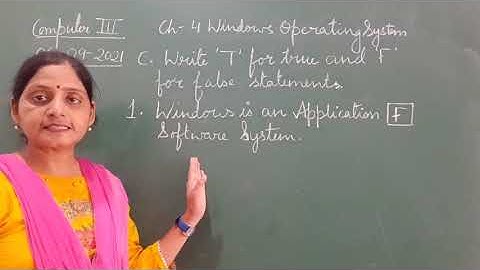 Computer III
Ch- 4 Windows Operating System
09-2021
C. Write 'T' for true and 'F'
for false statements.
1. Windows is an Application F
Software System.